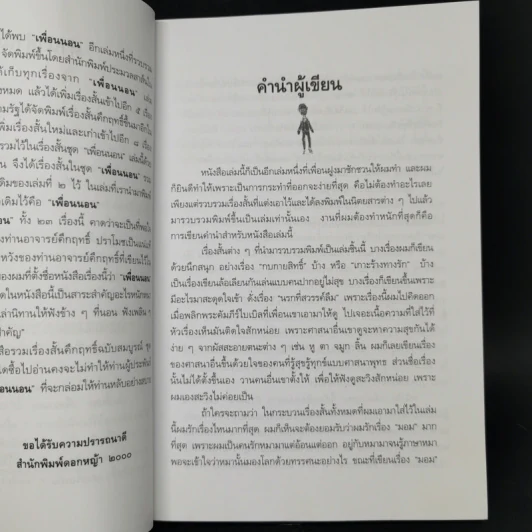 ได้พบ "เพื่อนนอน" อีกเล่มหนึ่งที่รวบรวม
จัดพิมพ์ขึ้นโดยสำนักพิมพ์ประมวลสาส์น
ด้เก็บทุกเรื่องจาก "เพื่อนนอน" เล่ม
งหมด แล้วได้เพิ่มเรื่องสั้นเข้าไปอีก ๕ เรื่อง
มรัฐได้จัดพิมพ์เรื่องสั้นคึกฤทธิ์ขึ้นมาอีก
เพิ่มเรื่องสั้นใหม่และเก่าเข้าไปอีก ๘ เรื่อง
รวมไว้ในเรื่องสั้นชุด "เพื่อนนอน" เล่มนี้ด้วย
น จึงได้เรื่องสั้นในชุด "เพื่อนนอน" รวม
เดิมของเล่มที่ ๒ ไว้ ในเล่มที่เรานำมาพิมพ์
เดิมไว้คือ "เพื่อนนอน"
นอน" ทั้ง ๒๓ เรื่องนี้ คาดว่าจะเป็นที่พอใจ
งท่านอาจารย์คึกฤทธิ์ ปราโมชเป็นแน่แท้
หวังของท่านอาจารย์คึกฤทธิ์ที่เขียนไว้ใน
องผมที่ตั้งชื่อหนังสือเรื่องนี้ว่า "เพื่อนนอน"
ดในหนังสือนี้เป็นสาระสำคัญอะไรหนักหนา
ล่านิทานให้ฟังข้าง ๆ ที่นอน ฟังเพลิน ๆ
ำคัญ"
สือรวมเรื่องสั้นคึกฤทธิ์ฉบับสมบูรณ์ ชุด
ดซื้อไปอ่านคงจะไม่ทำให้ท่านผู้ประพันธ์
อนนอน" ที่จะกล่อมให้ท่านหลับอย่างสบาย
ขอได้รับความปรารถนาดี
สำนักพิมพ์ดอกหญ้า ๒๐๐๐
คำนำผู้เขียน
หนังสือเล่มนี้ก็เป็นอีกเล่มหนึ่งที่เพื่อนฝูงมาชักชวนให้ผมทำ และผม
ก็ยินดีทำให้เพราะเป็นการกระทำที่ออกจะง่ายที่สุด คือไม่ต้องทำอะไรเลย
เพียงแต่รวบรวมเรื่องสั้นที่แต่งเอาไว้และได้ลงพิมพ์ในนิตยสารต่าง ๆ ไปแล้ว
มารวบรวมพิมพ์ขึ้นเป็นเล่มเท่านั้นเอง งานที่ผมต้องทำหนักที่สุดก็คือ
การเขียนคำนำสำหรับหนังสือเล่มนี้
เรื่องสั้นต่าง ๆ ที่นำมารวบรวมพิมพ์เป็นเล่มขึ้นนี้ บางเรื่องผมก็เขียน
ด้วยนึกสนุก อย่างเรื่อง "กบกายสิทธิ์" บ้าง หรือ "เกาะร้างทางรัก" บ้าง
เป็นเรื่องเขียนล้อเลียนกันเล่นแบบคนปากอยู่ไม่สุข บางเรื่องก็เขียนขึ้นเพราะ
มีอะไรมาสะดุดใจเข้า ดังเรื่อง "นรกที่สวรรค์ลืม" เพราะเรื่องนี้ผมไปคิดออก
เมื่อพลิกพระคัมภีร์ไบเบิลที่เพื่อนเขาเอามาให้ดู ไปเจอะเนื้อความที่ใส่ไว้ที่
หัวเรื่องเห็นมันติดใจสักหน่อย เพราะศาสนาอื่นเขาดูจะหาความสุขกันได้
ง่าย ๆ จากผัสสะอายตนะต่าง ๆ เช่น หู ตา จมูก ลิ้น ผมก็เลยเขียนเรื่อง
ของศาสนาอื่นขึ้นด้วยใจของคนที่รู้สุขรู้ทุกข์แบบศาสนาพุทธ ส่วนชื่อเรื่อง
นั้นไม่ได้ตั้งขึ้นเอง วานคนอื่นเขาตั้งให้ เพื่อให้ฟังดูสะวิงสักหน่อย เพราะ
ผมเองสะวิงไม่ค่อยเป็น
ถ้าใครจะถามว่า ในกระบวนเรื่องสั้นทั้งหมดที่ผมเอามาใส่ไว้ในเล่ม
นี้ผมรักเรื่องไหนมากที่สุด ผมก็เห็นจะต้องยอมรับว่าผมรักเรื่อง "มอม" มาก
ที่สุด เพราะผมเป็นคนรักหมามาแต่อ้อนแต่ออก อยู่กับหมามาจนรู้ภาษาหมา
พอจะเข้าใจว่าหมานั้นมองโลกด้วยทรรศนะอย่างไร ขณะที่เขียนเรื่อง "มอม"